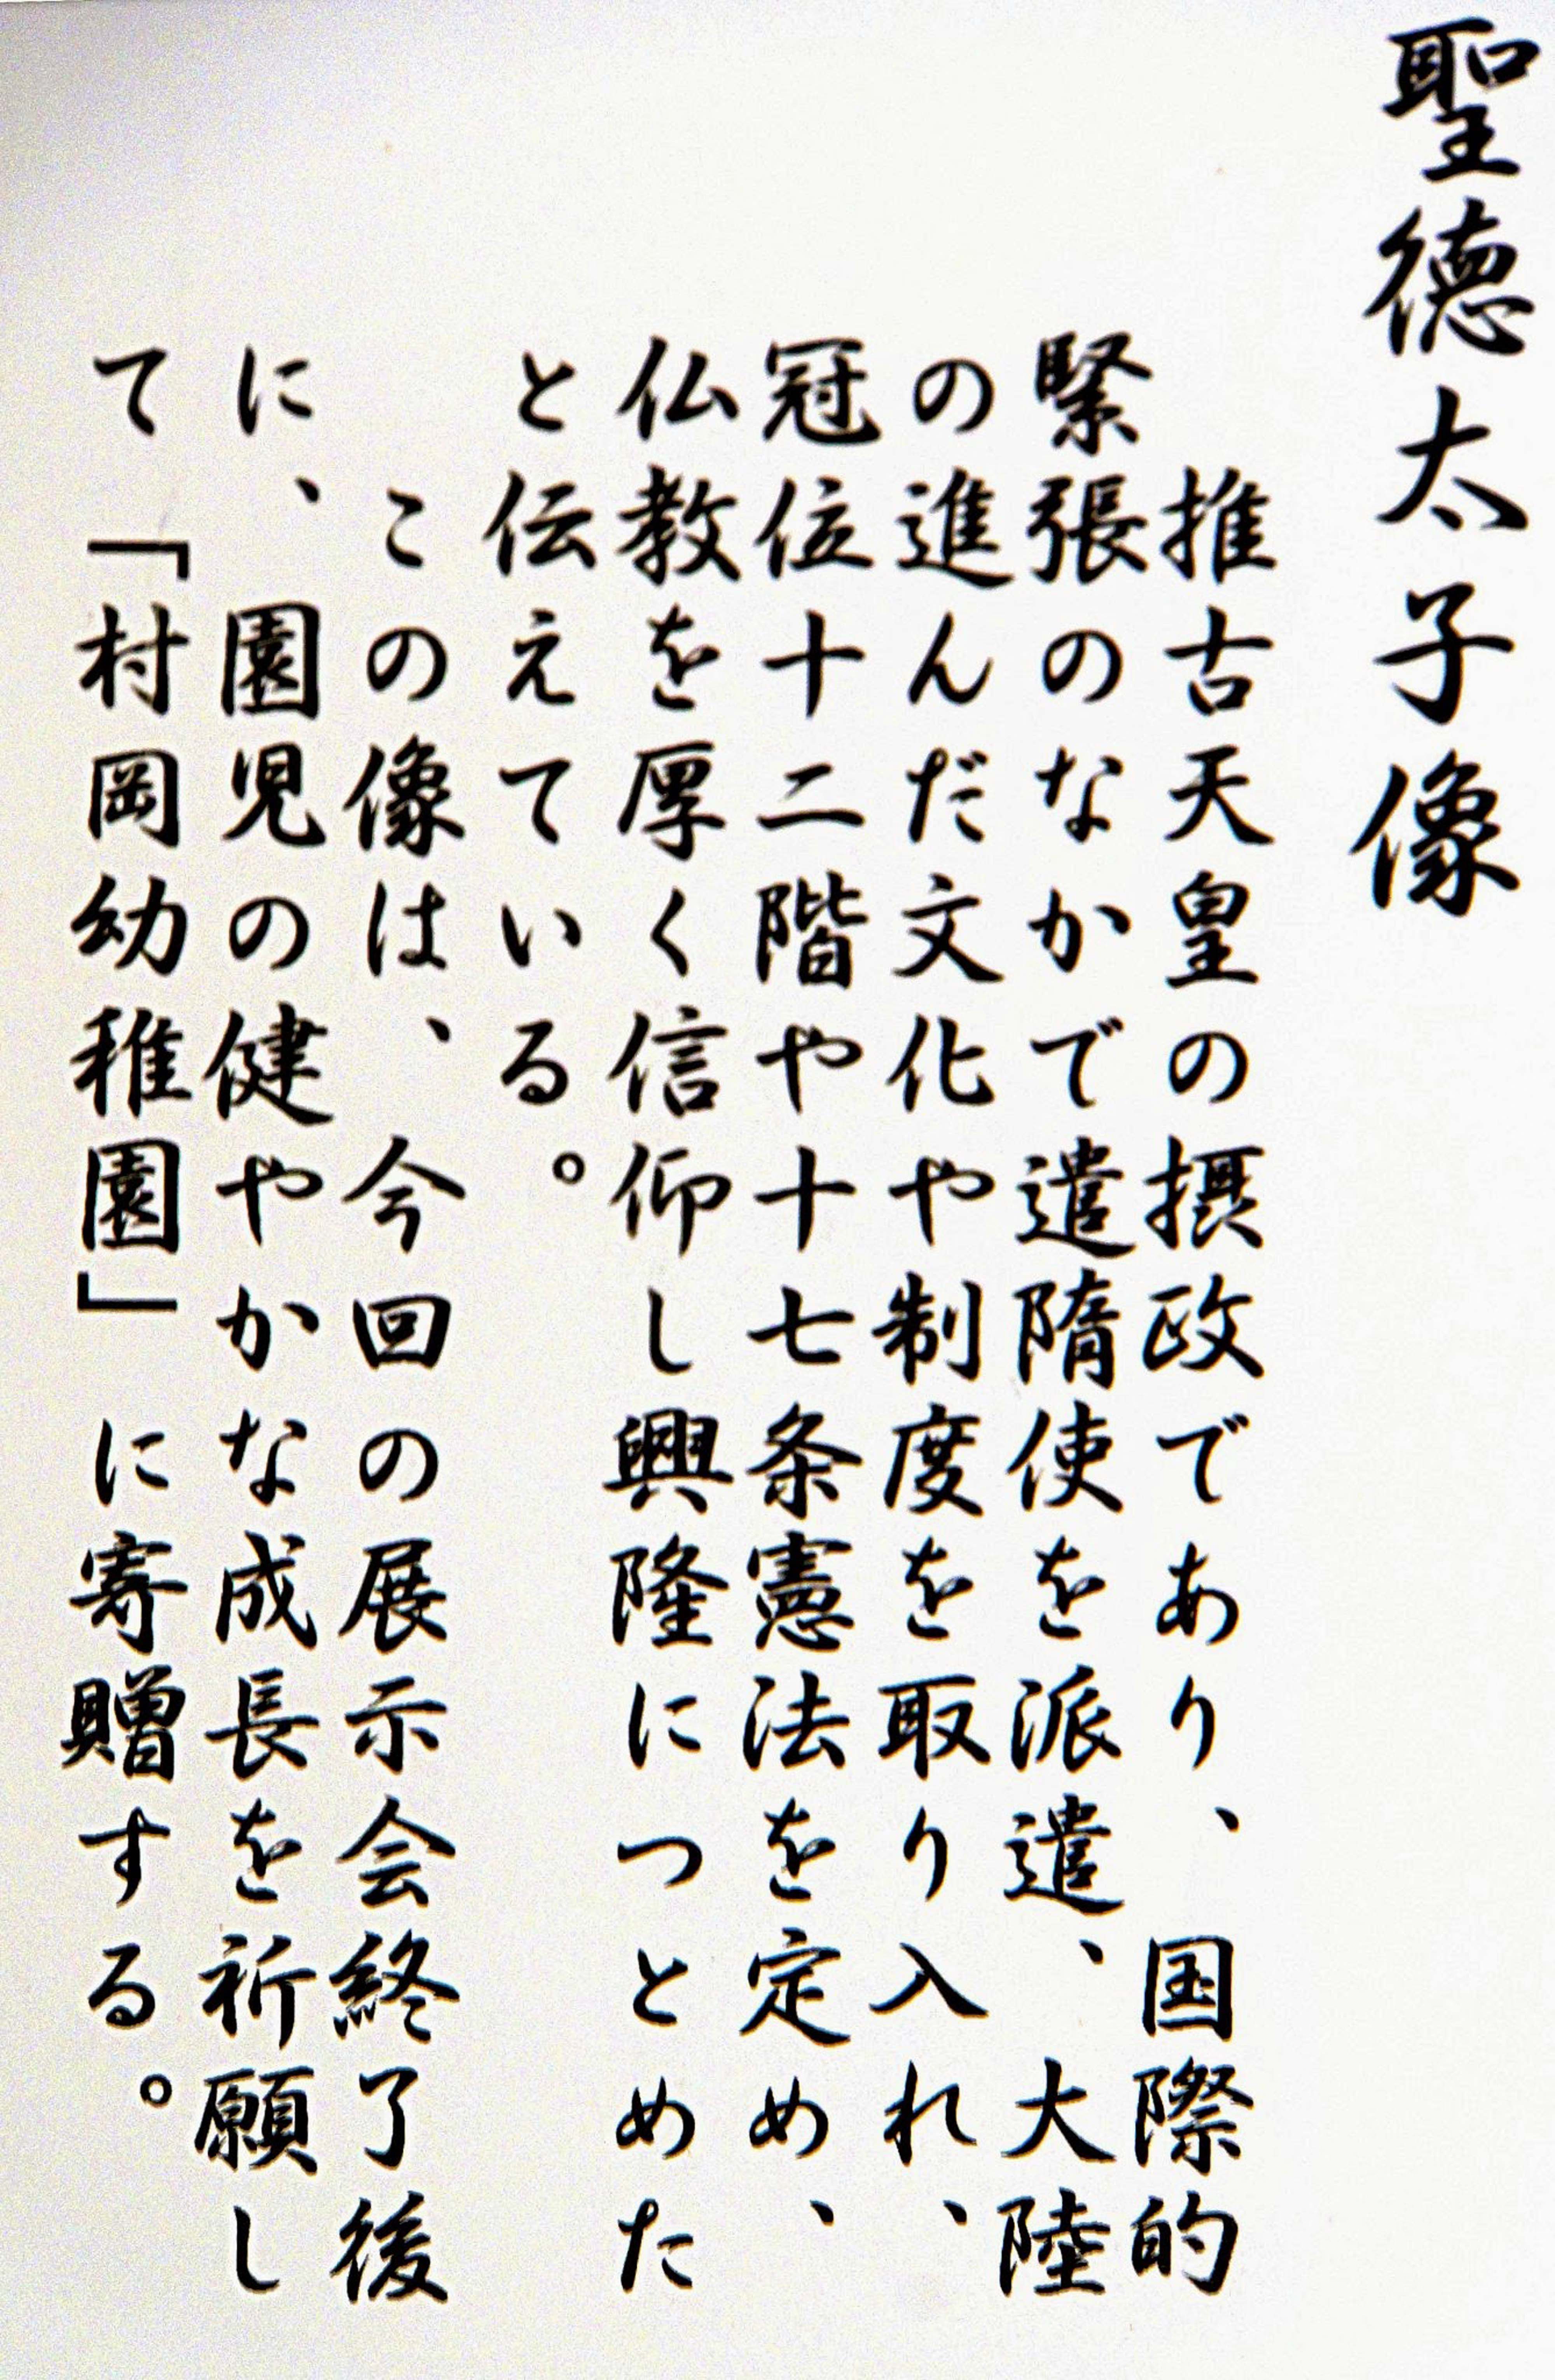 聖徳太子像
推古天皇の摂政であり、国際的
緊張のなかで遣隋使を派遣、大陸
の進んだ文化や制度を取り入れ、
冠位十二階や十七条憲法を定め、
仏教を厚く信仰し興隆につとめた
と伝えている。
この像は、今回の展示会終了後
に、園児の健やかな成長を祈願し
て「村岡幼稚園」に寄贈する。